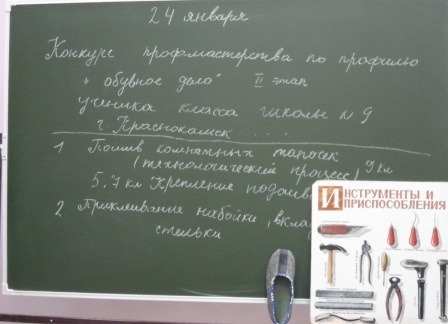 24 января
Конкурс профмастерства по профилю
"обувное дело" II этап
ученика класса школы N 9
г. Краснокамск....
1 Пошив комнатных тапочек
(технологический процесс) 9 кл
5.7 кл Крепление подошв
2 Приклеивание набойки, вкла
стельки
ИНСТРУМЕНТЫ И
ПРИСПОСОБЛЕНИЯ